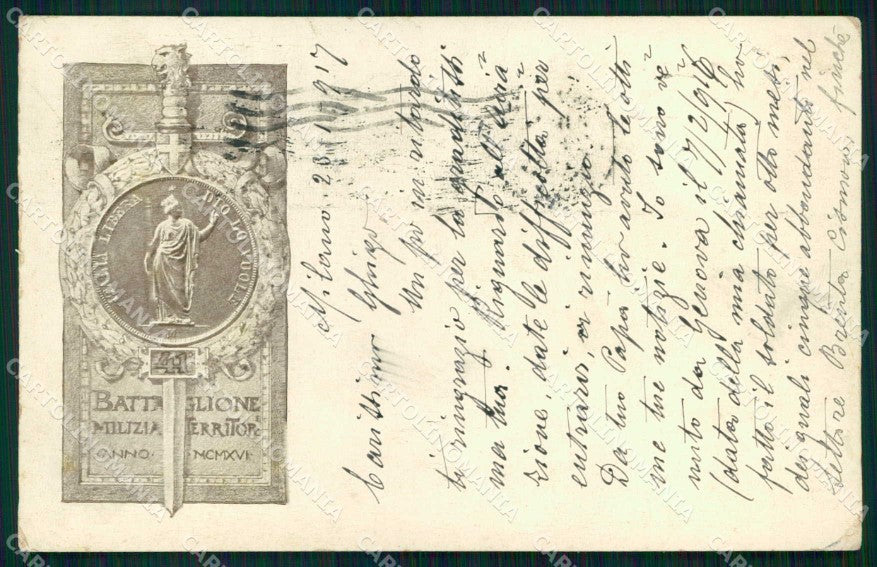 ITALIA LIBERA
DIO LO VUOLE
41
BATTAGLIONE
MILIZIA TERRITOR.
ANNO MCMXVI
Milano 23 1 917
Carissimo Ghigo
Un po' in ritardo
ti ringrazio per la graditissi
ma tua. Riguardo all'avia
zione, date le difficoltà per
entrarci, ci rinunzio.
Da tuo Papà ho avuto le otti
me tue notizie. Io sono ve
nuto da Genova il 7/2/916
(data della mia chiamata) ho
fatto il soldato per otto mesi,
dei quali cinque abbondanti nel
settore Brenta Cismon, finchè